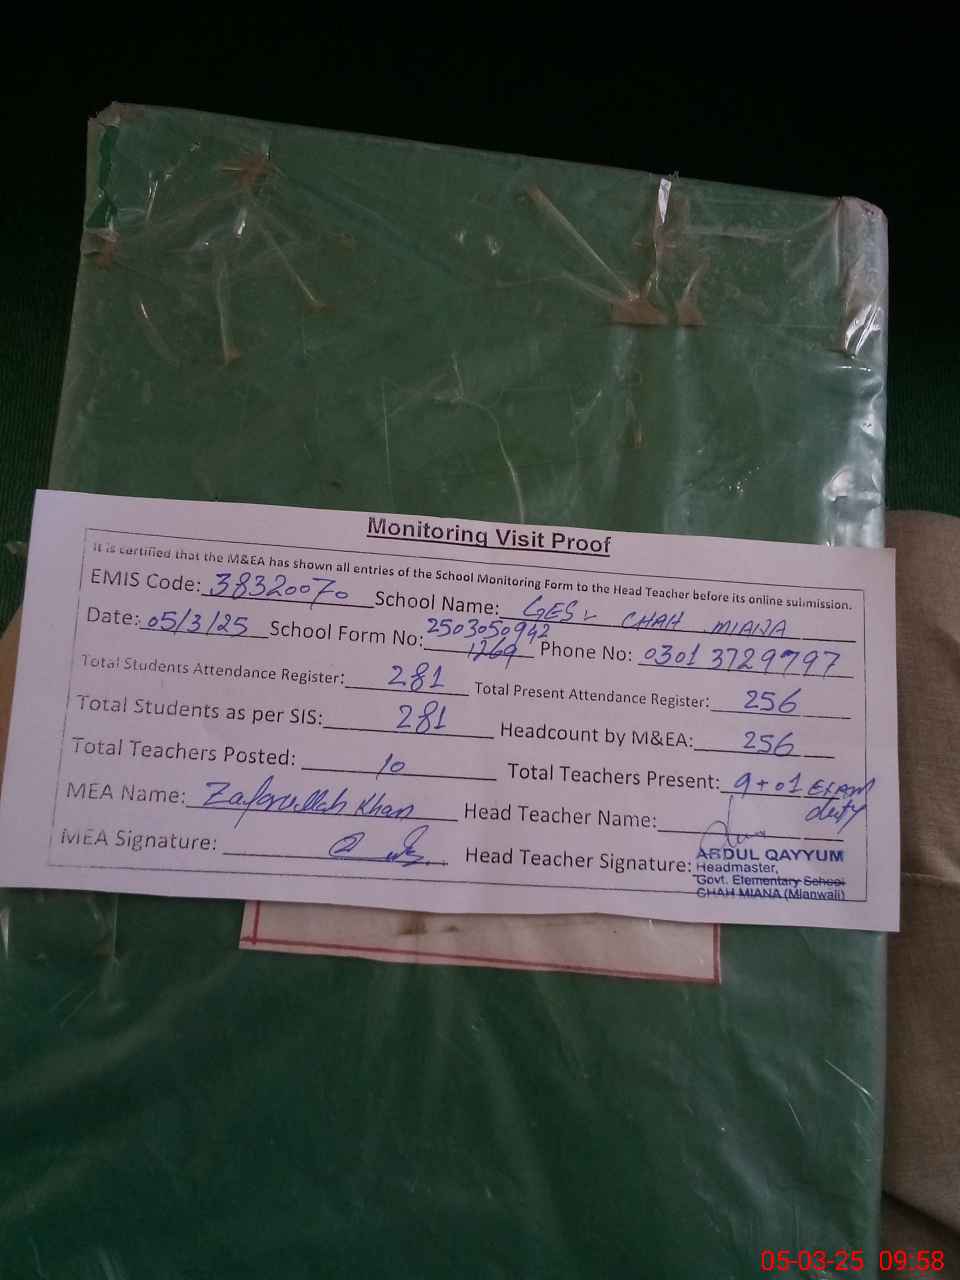 Monitoring Visit Proof
It is certified that the M&EA has shown all entries of the School Monitoring Form to the Head Teacher before its online submission.
EMIS Code: 38320070 School Name: GES CHAH MIANA
Date: 05/3/25 School Form No: 2503050942 1269 Phone No: 0301 3729797
Total Students Attendance Register: 281 Total Present Attendance Register: 256
Total Students as per SIS: 281 Headcount by M&EA: 256
Total Teachers Posted: 10 Total Teachers Present: 9+01 Exam duty
MEA Name: Zafarullah Khan Head Teacher Name:
MEA Signature: Head Teacher Signature:
ABDUL QAYYUM
Headmaster,
Govt. Elementary School
CHAH MIANA (Mianwali)
05-03-25 09:58